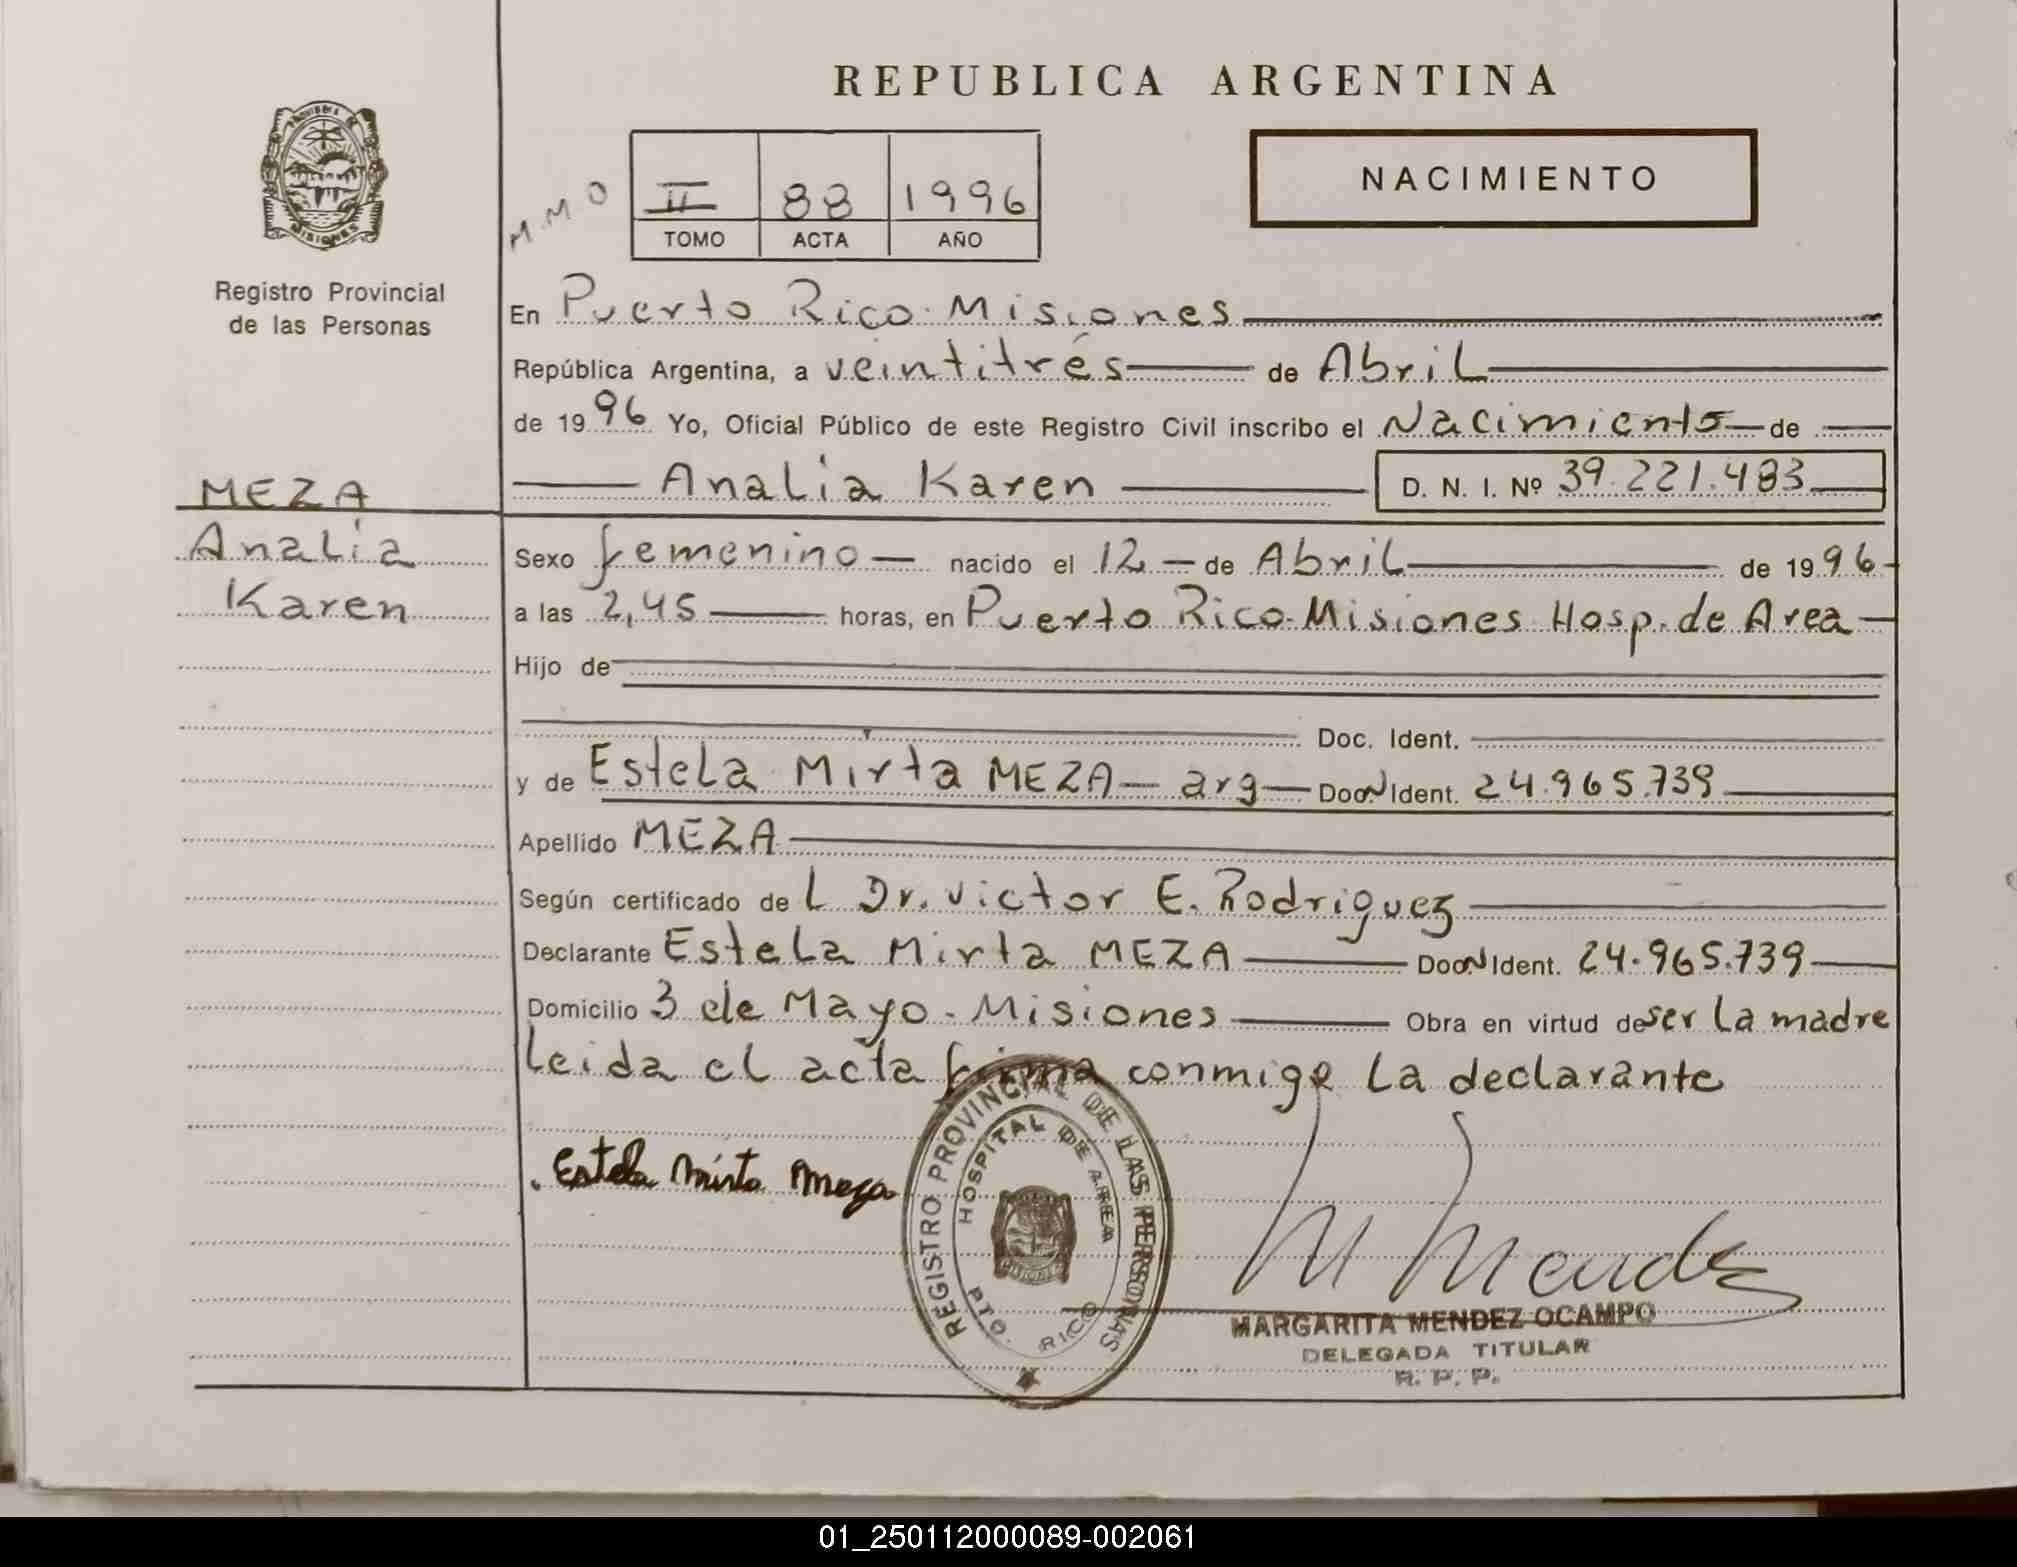 REPUBLICA ARGENTINA
PROVINCIA DE MISIONES
Registro Provincial
de las Personas
M.M.O
II 88 1996
TOMO ACTA AÑO
NACIMIENTO
En Puerto Rico. Misiones
República Argentina, a veintitrés de Abril
de 1996 Yo, Oficial Público de este Registro Civil inscribo el Nacimiento de
Analia Karen D. N. I. Nº 39.221.483
MEZA
Analia
Karen
Sexo femenino nacido el 12 de Abril de 1996
a las 2,45 horas, en Puerto Rico. Misiones Hosp. de Area
Hijo de
Doc. Ident.
y de Estela Mirta MEZA arg Doc. Ident. 24.965.739
Apellido MEZA
Según certificado de L Dr. Victor E. Rodriguez
Declarante Estela Mirta MEZA Doc. Ident. 24.965.739
Domicilio 3 de Mayo. Misiones Obra en virtud de ser la madre
Leida el acta firma conmigo la declarante
Estela Mirta Meza
REGISTRO PROVINCIAL DE LAS PERSONAS
HOSPITAL DE AREA
PTO. RICO
M Mendez
MARGARITA MENDEZ OCAMPO
DELEGADA TITULAR
R. P. P.
01_250112000089-002061